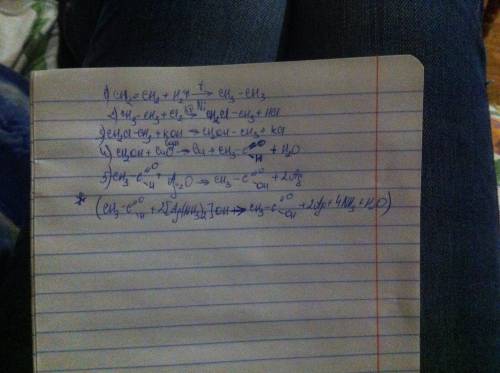 1) CH2=CH2 + H2 →t CH3-CH3
2) CH3-CH3 + Cl2 → Ni CH2Cl-CH3 + HCl
3) CH2Cl-CH3 + KOH → CH2OH-CH3 + KCl
4) CH3OH + CuO → Cu + CH3-C =O H + H2O
5) CH3-C =O H + Ag2O → CH3-C =O OH + 2Ag
* (CH3-C =O H + 2[Ag(NH3)2]OH → CH3-C =O OH + 2Ag + 4NH3 + H2O)